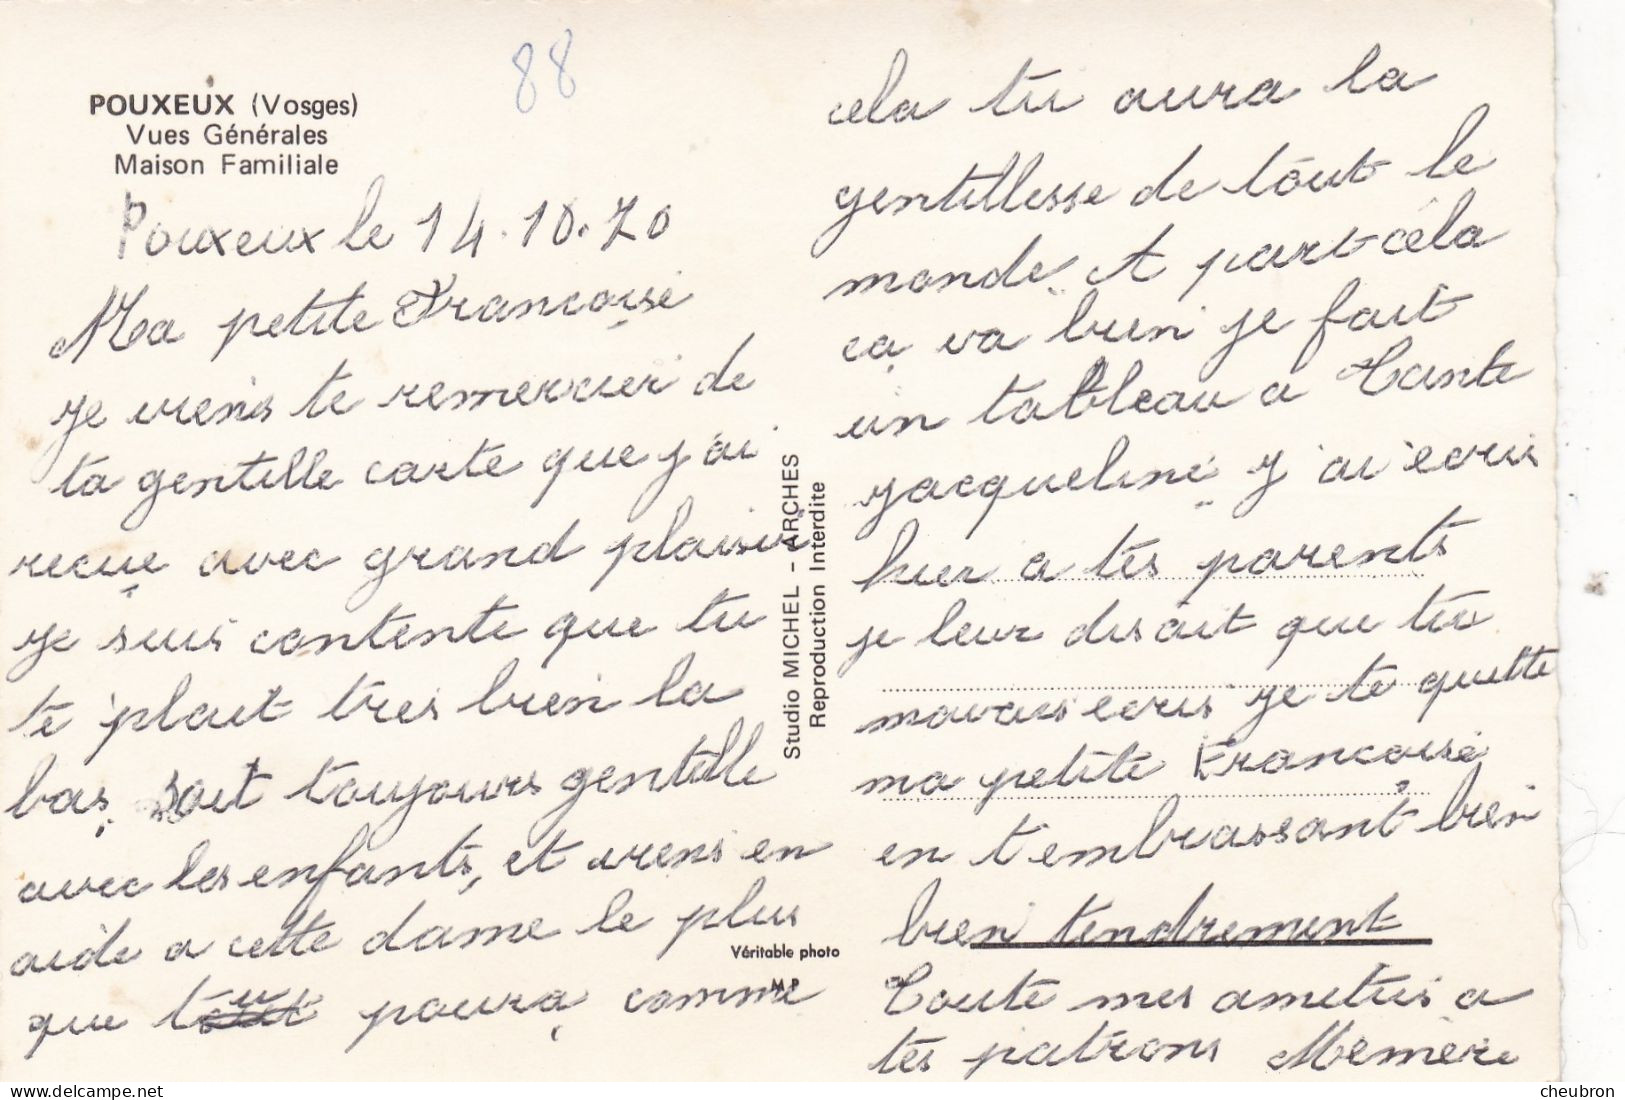 88
POUXEUX (Vosges)
Vues Générales
Maison Familiale
Pouxeux le 14.10.70
Ma petite Françoise
je viens te remercier de
ta gentille carte que j'ai
reçue avec grand plaisir
je suis contente que tu
te plait tres bien la
bas, soit toujours gentille
avec les enfants, et viens en
aide a cette dame le plus
que tu poura, comme
cela tu aura la
gentillesse de tout le
monde. A part cela
ça va bien je fait
un tableau a Tante
jacqueline j'ai ecris
hier a tes parents
je leur disait que tu
m'avais ecris je te quitte
ma petite Françoise
en t'embrassant bien
bien tendrement
Toute mes amitiés a
tes patrons Mémère
Studio MICHEL - ARCHES
Reproduction Interdite
Véritable photo
MP
delcampe.net
cheubron